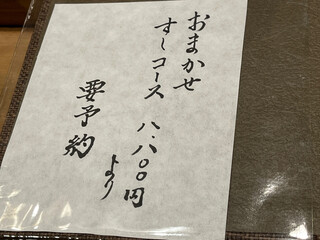 おまかせ
すしコース 八.八〇〇円
より
要予約